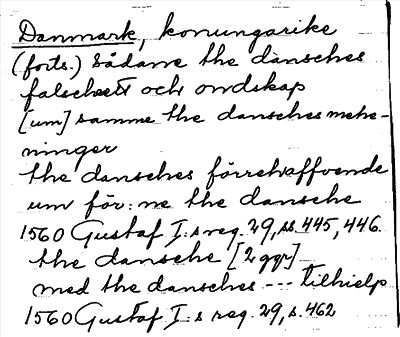 Danmark, konungarike
(forts.) Sådane the dansches
falscheett och ondskap
[um] samme the dansches mehe-
ninger
the dansches förrehaffvende
um för:ne the dansche
1560 Gustaf I:s reg. 29, ss. 445, 446.
the dansche [2 ggr]
med the dansches --- tilhielp
1560 Gustaf I:s reg. 29, s. 462